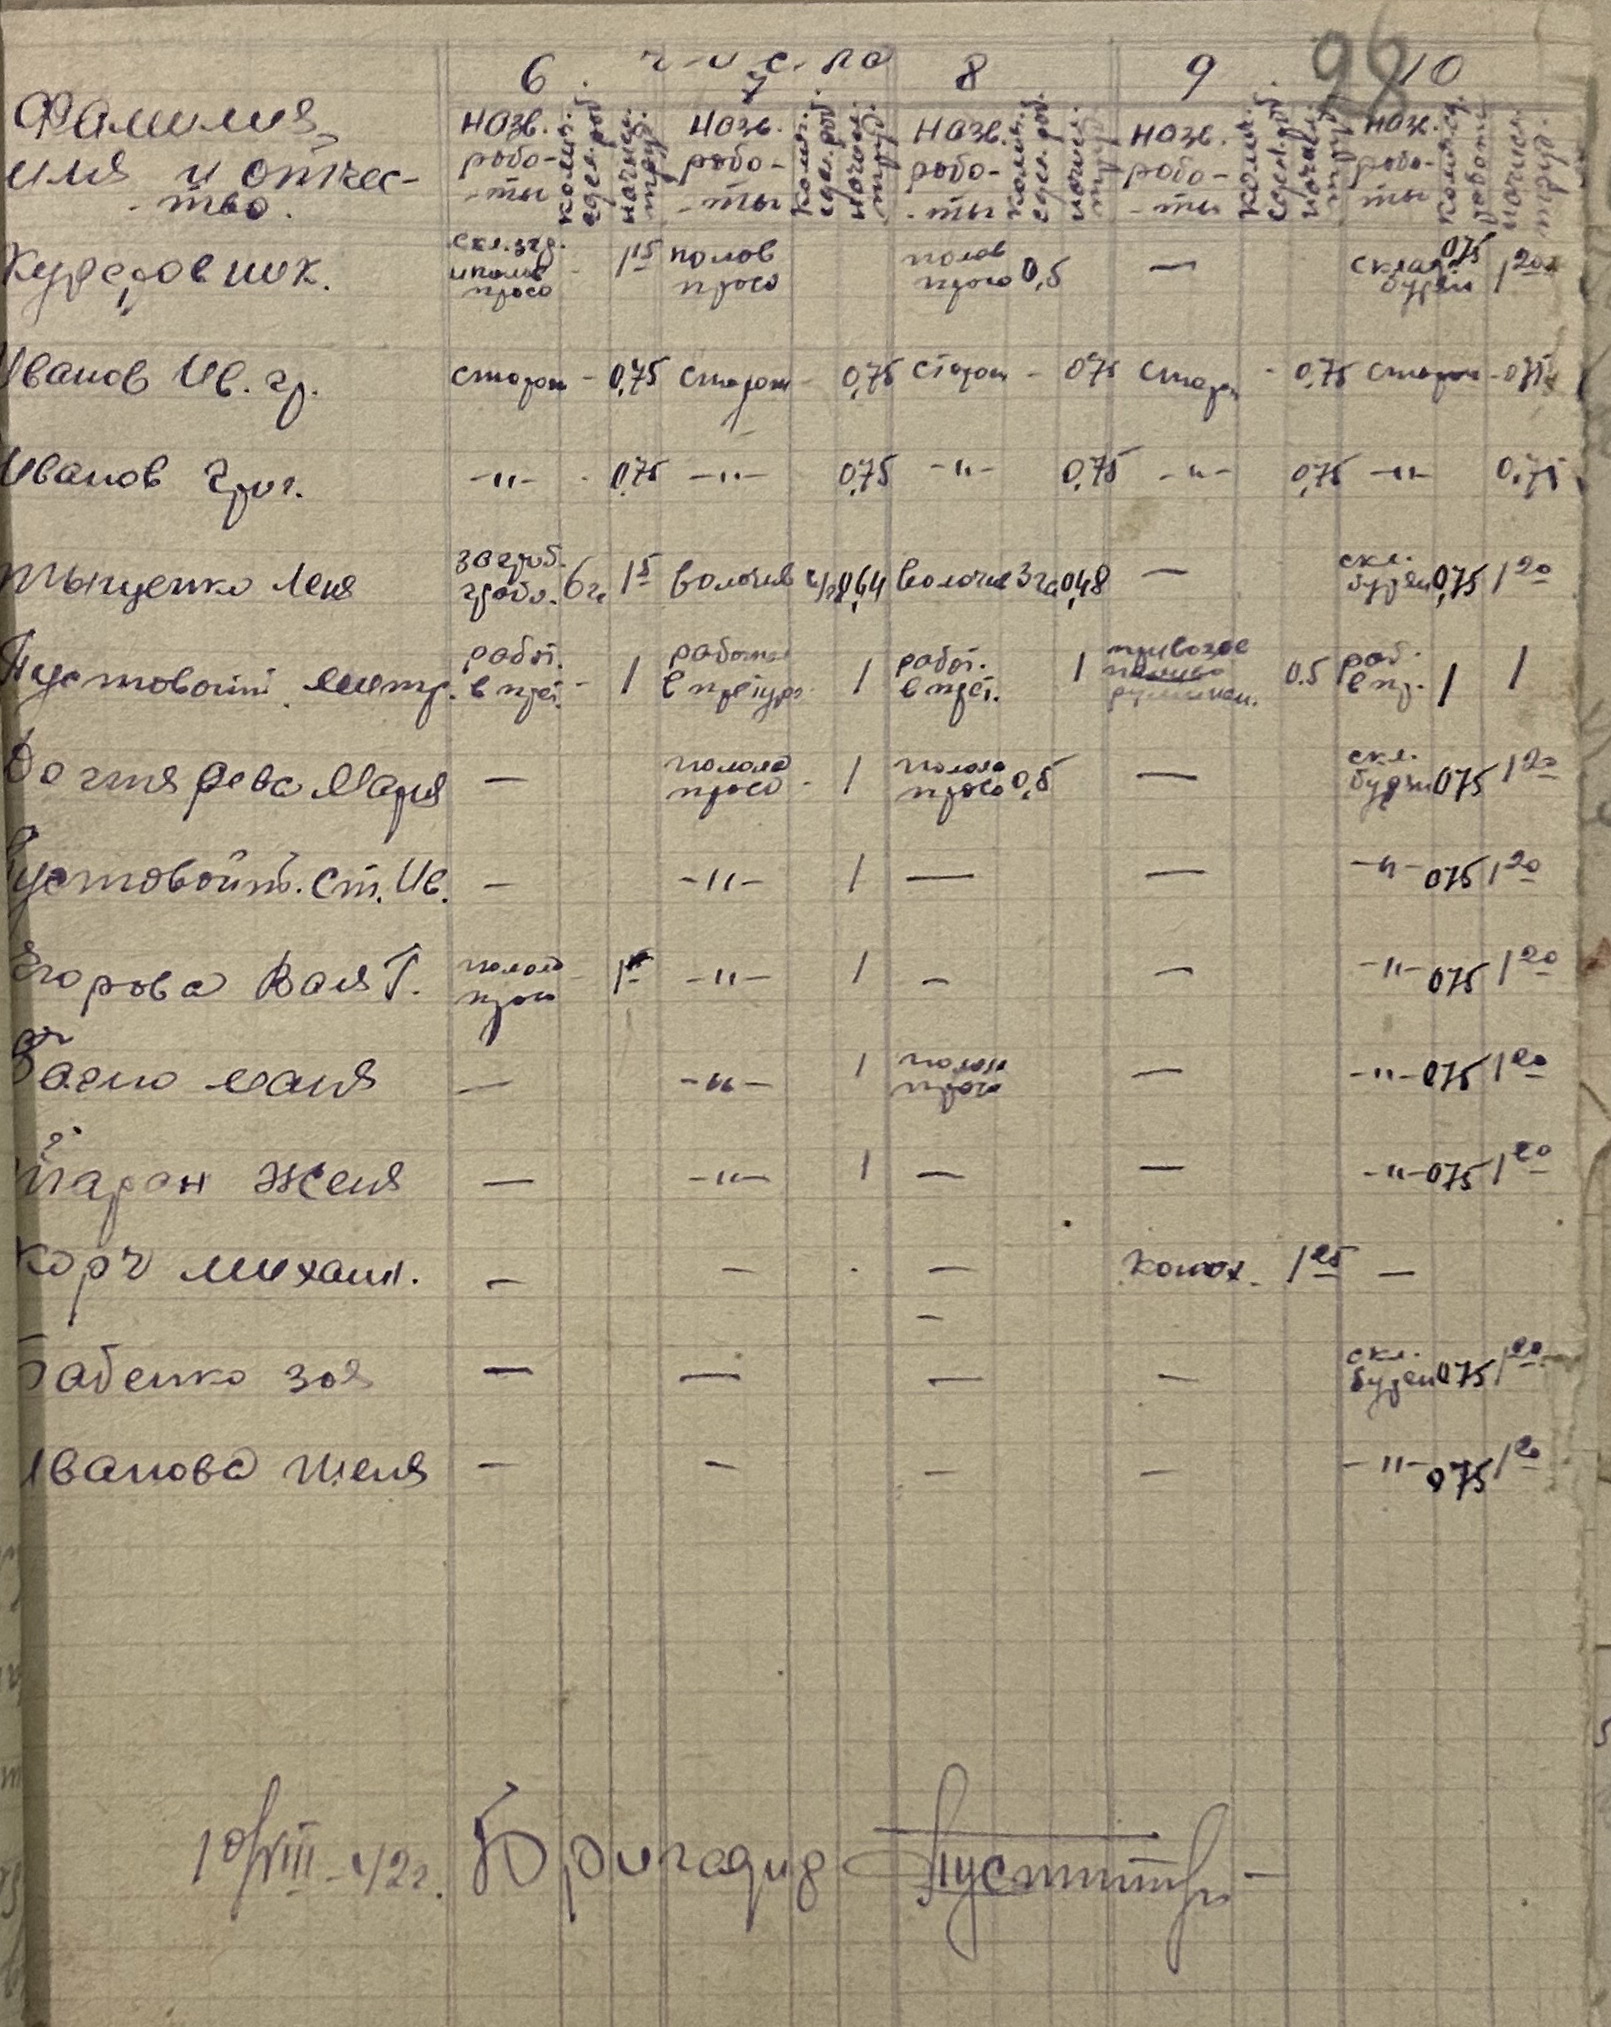 98
6. числа 7 8 9 10
Фамилия, имя и отчес-
-тво.
назв. рабо- -ты колич. сдел. раб. начисл. труд. назв. рабо- -ты колич. сдел. раб. начисл. труд. назв. рабо- -ты колич. сдел. раб. начисл. труд. назв. рабо- -ты колич. сдел. раб. начисл. труд. назв. рабо- ты колич. ед. работы начисл. труд.
полов просо - 1 15 полов просо полов просо 0,5 — 075 1 20
Иванов Ив. гр. сторож - 0,75 сторож - 0,75 сторож - 075 сторож - 0,75 сторож - 075
Иванов Григ. -"- - 0,75 -"- 0,75 -"- 0,75 -"- 0,75 -"- 0,75
Леня загреб. 6 г. 1 5 волочив 0,64 волочив 3 га 0,48 — скл. бурян 0,75 1 20
Пустовойт митр. работ. в прет. - 1 работа 1 работ. в прет. 1 0.5 раб. в пр. 1 1
Дегтярева Мария — полола просо - 1 полола просо 0,5 — скл. бурян 075 1 20
Пустовойт. Ст. Ив. — -"- 1 — — -"- 075 1 20
Егорова Валя Г. полола просо - 1 -"- 1 - — -"- 075 1 20
маня — -"- 1 полола просо — -"- 075 1 20
Таран Женя — -"- 1 — — -"- 075 1 20
Корч михаил. — — - — конюх. 1 25 —
—
Бабенко Зоя — — — — скл. бурян 075 1 20
Иванова Женя — — — — -"- 075 1 20
10/VIII-42г. Бригадир